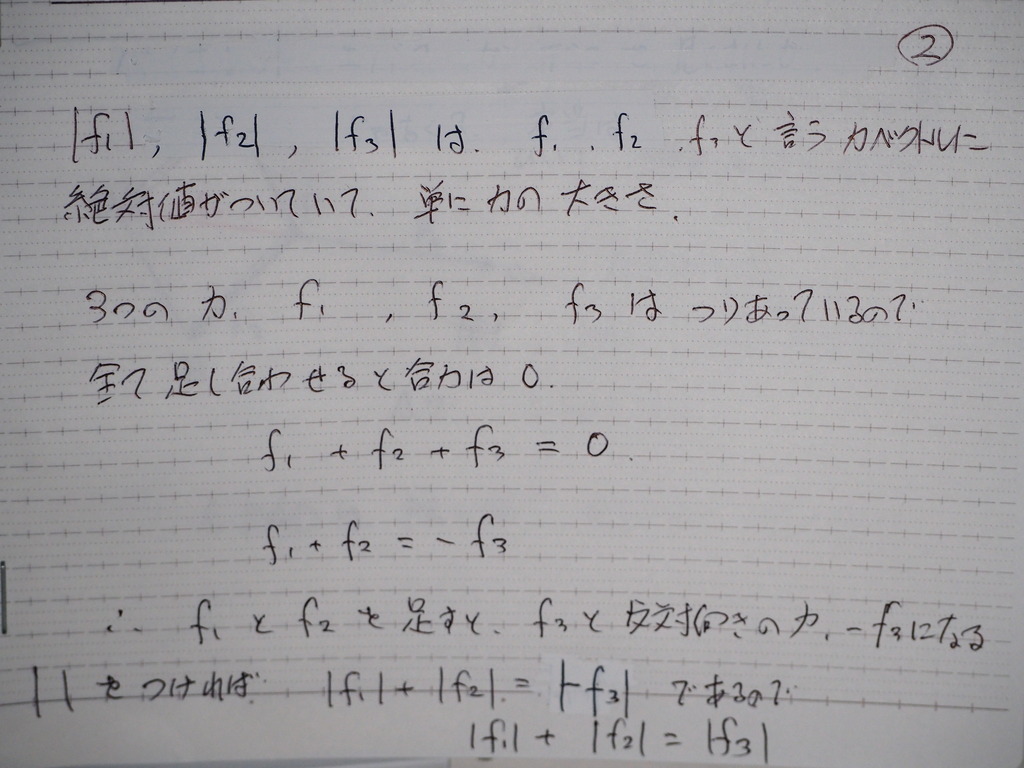 ②
|f₁|, |f₂|, |f₃| は. f₁. f₂. f₃と言う力ベクトルに
絶対値がついていて. 単に力の大きさ.
3つの力. f₁, f₂, f₃はつりあっているので
全て足し合わせると合力は0.
f₁ + f₂ + f₃ = 0.
f₁ + f₂ = - f₃
∴ f₁とf₂を足すと、f₃と反対向きの力、-f₃になる
| | をつければ |f₁| + |f₂| = |-f₃| であるので
|f₁| + |f₂| = |f₃|